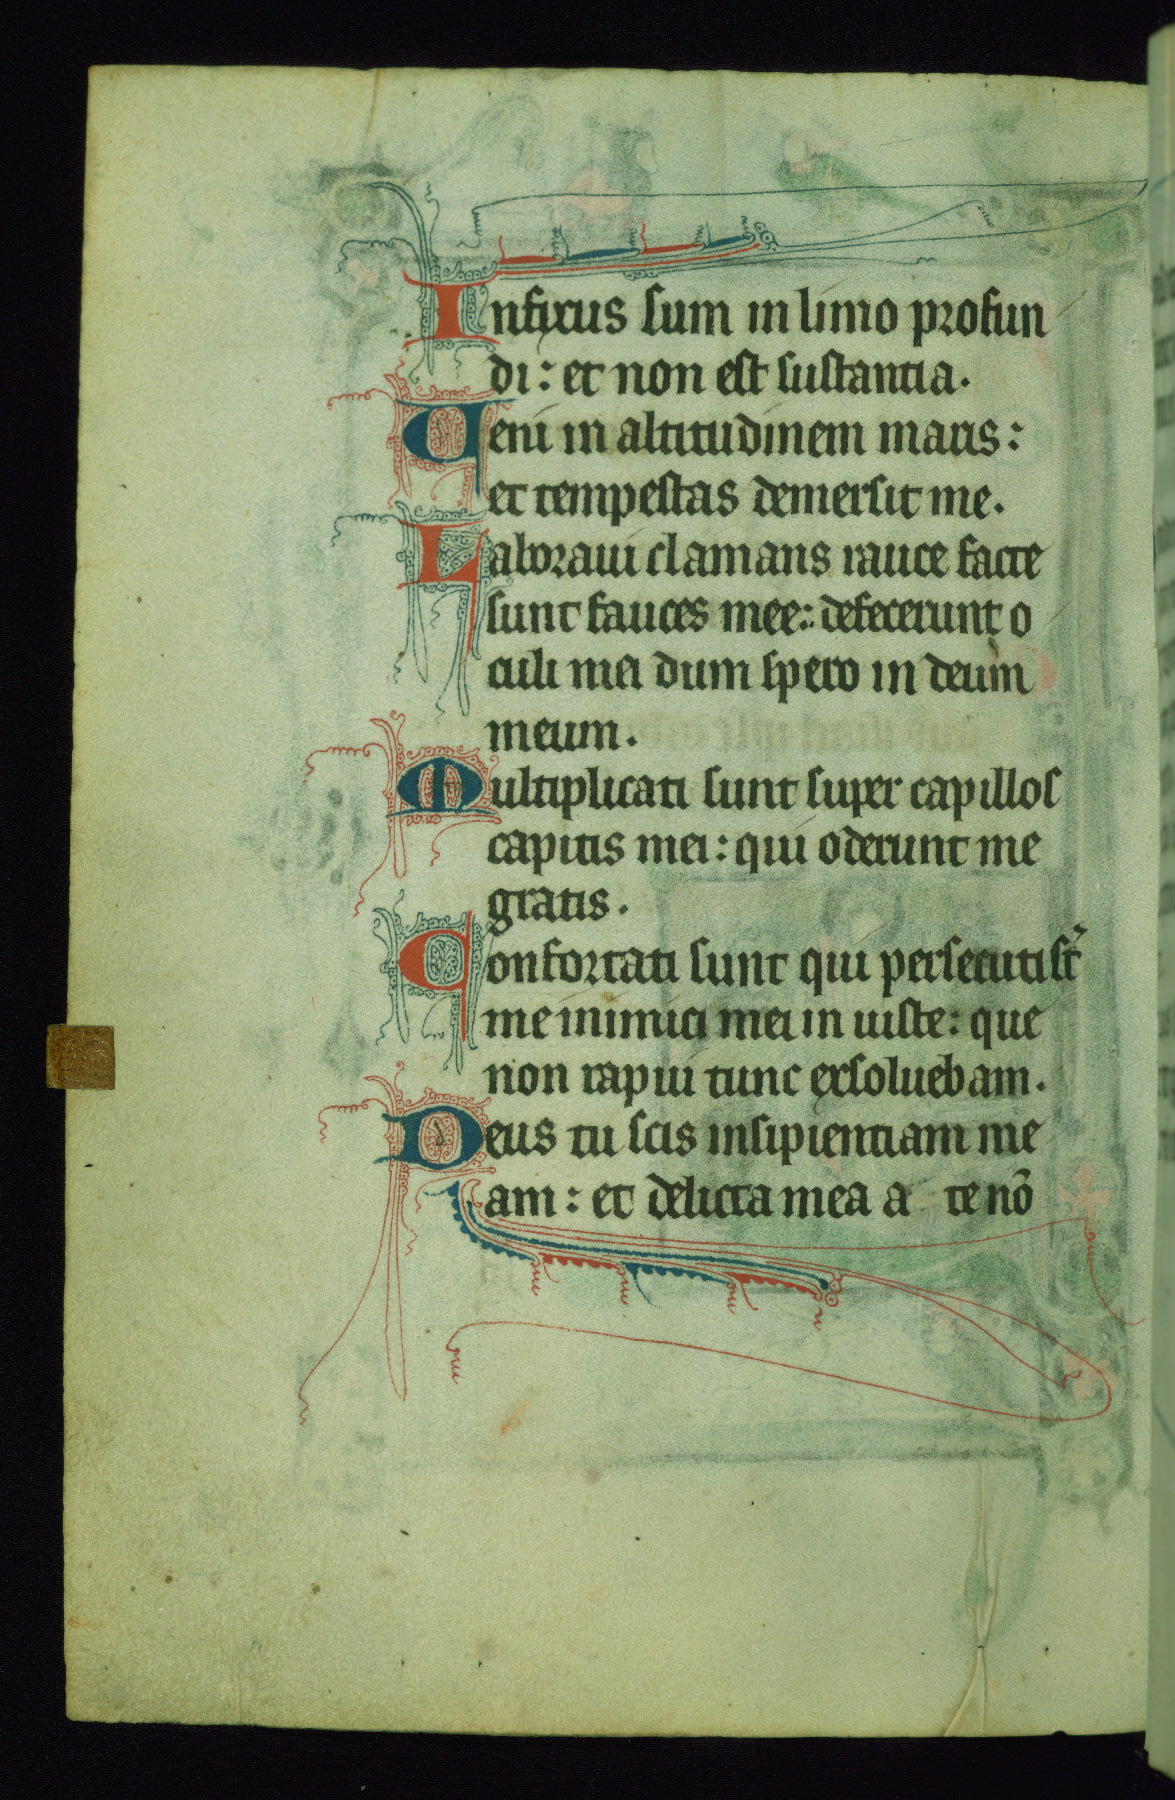 Infixus sum in limo profun
di: et non est sustantia.
Veni in altitudinem maris:
et tempestas demersit me.
Laboraui clamans rauce facte
sunt fauces mee: defecerunt o
culi mei dum spero in deum
meum.
Multiplicati sunt super capillos
capitis mei: qui oderunt me
gratis.
Confortati sunt qui persecuti st̃
me inimici mei in iuste: que
non rapui tunc exsoluebam.
Deus tu scis insipientiam me
am: et delicta mea a te nō